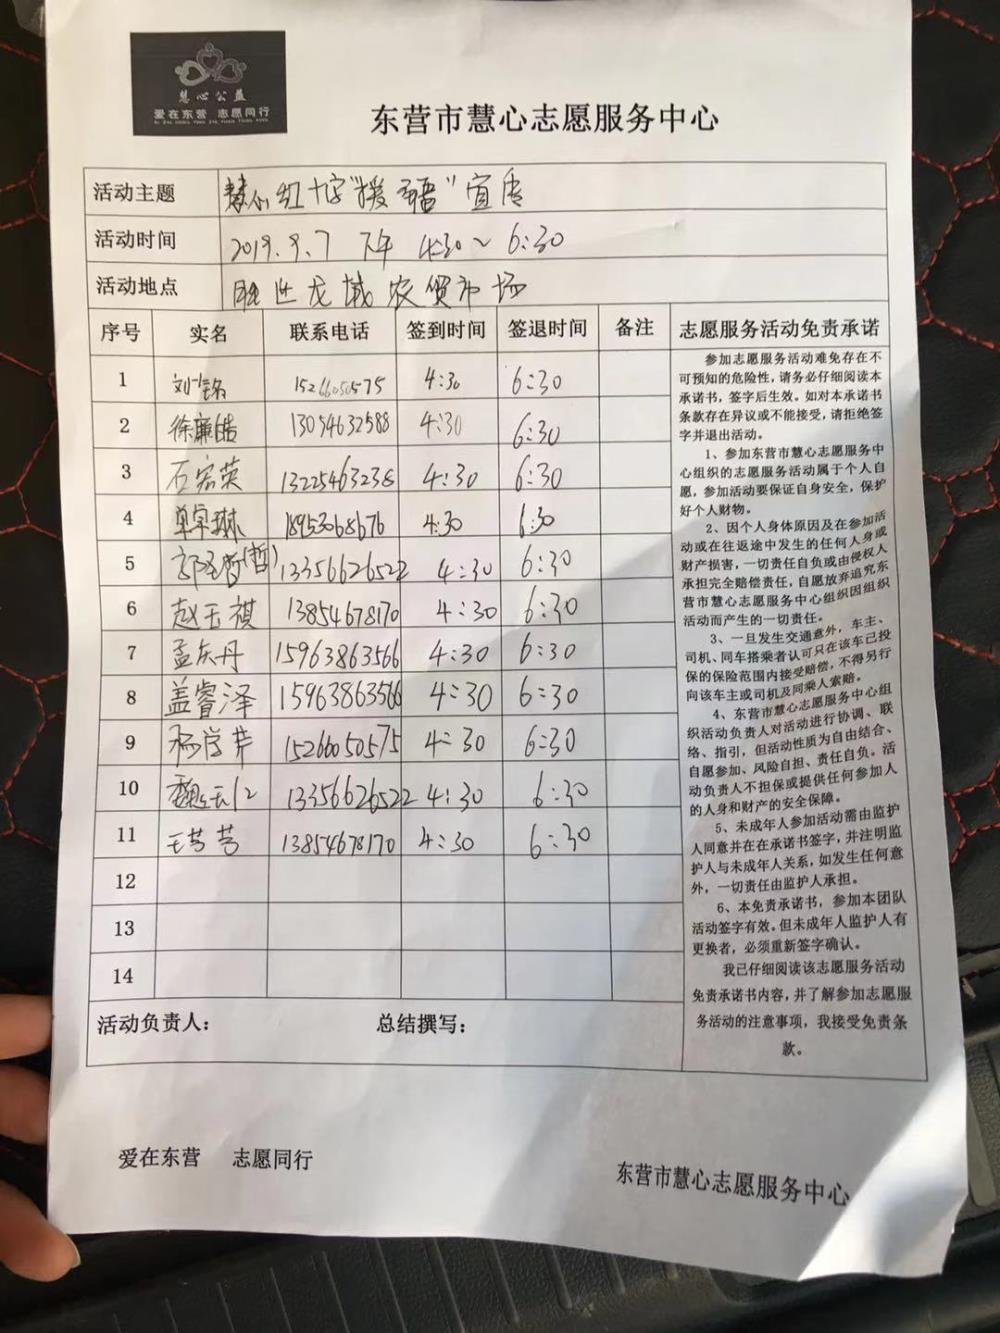 慧心公益
爱在东营 志愿同行
东营市慧心志愿服务中心
活动主题 慧心红十字"援 " 宣传
活动时间 2019.9.7 下午 4:30~6:30
活动地点 胜 龙城农贸市场
序号 实名 联系电话 签到时间 签退时间 备注
1 刘 铭 15266050575 4:30 6:30
2 徐 皓 13054632588 4:30 6:30
3 石宏荣 13225463238 4:30 6:30
4 单卓琳 18953068676 4:30 6:30
5 郭 (哲) 13356626522 4:30 6:30
6 赵玉祺 13854678170 4:30 6:30
7 孟庆丹 15963863566 4:30 6:30
8 盖睿泽 15963863566 4:30 6:30
9 杨 芹 15266050575 4:30 6:30
10 魏 仁 13356626522 4:30 6:30
11 王芳芳 13854678170 4:30 6:30
12
13
14
活动负责人： 总结撰写：
志愿服务活动免责承诺
参加志愿服务活动难免存在不
可预知的危险性，请务必仔细阅读本
承诺书，签字后生效。如对本承诺书
条款存在异议或不能接受，请拒绝签
字并退出活动。
1、参加东营市慧心志愿服务中
心组织的志愿服务活动属于个人自
愿，参加活动要保证自身安全，保护
好个人财物。
2、因个人身体原因及在参加活
动或在往返途中发生的任何人身或
财产损害，一切责任自负或由侵权人
承担完全赔偿责任，自愿放弃追究东
营市慧心志愿服务中心组织因组织
活动而产生的一切责任。
3、一旦发生交通意外，车主、
司机、同车搭乘者认可只在该车已投
保的保险范围内接受赔偿，不得另行
向该车主或司机及同乘人索赔。
4、东营市慧心志愿服务中心组
织活动负责人对活动进行协调、联
络、指引，但活动性质为自由结合、
自愿参加、风险自担、责任自负。活
动负责人不担保或提供任何参加人
的人身和财产的安全保障。
5、未成年人参加活动需由监护
人同意并在在承诺书签字，并注明监
护人与未成年人关系，如发生任何意
外，一切责任由监护人承担。
6、本免责承诺书，参加本团队
活动签字有效。但未成年人监护人有
更换者，必须重新签字确认。
我已仔细阅读该志愿服务活动
免责承诺书内容，并了解参加志愿服
务活动的注意事项，我接受免责条
款。
爱在东营 志愿同行
东营市慧心志愿服务中心